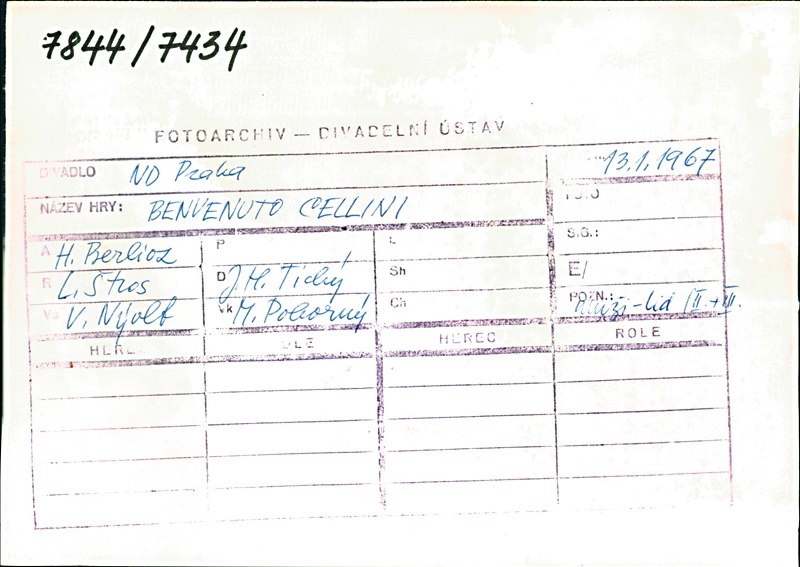 7844/7434
FOTOARCHIV — DIVADELNÍ ÚSTAV
DIVADLO ND Praha 13.1.1967
NÁZEV HRY: BENVENUTO CELLINI
A H. Berlioz P L S.G.:
R L. Štros D J.H. Tichý Sh E/
V. Nývlt Vk M. Pokorný Ch POZN.: II.+III.
HEREC ROLE